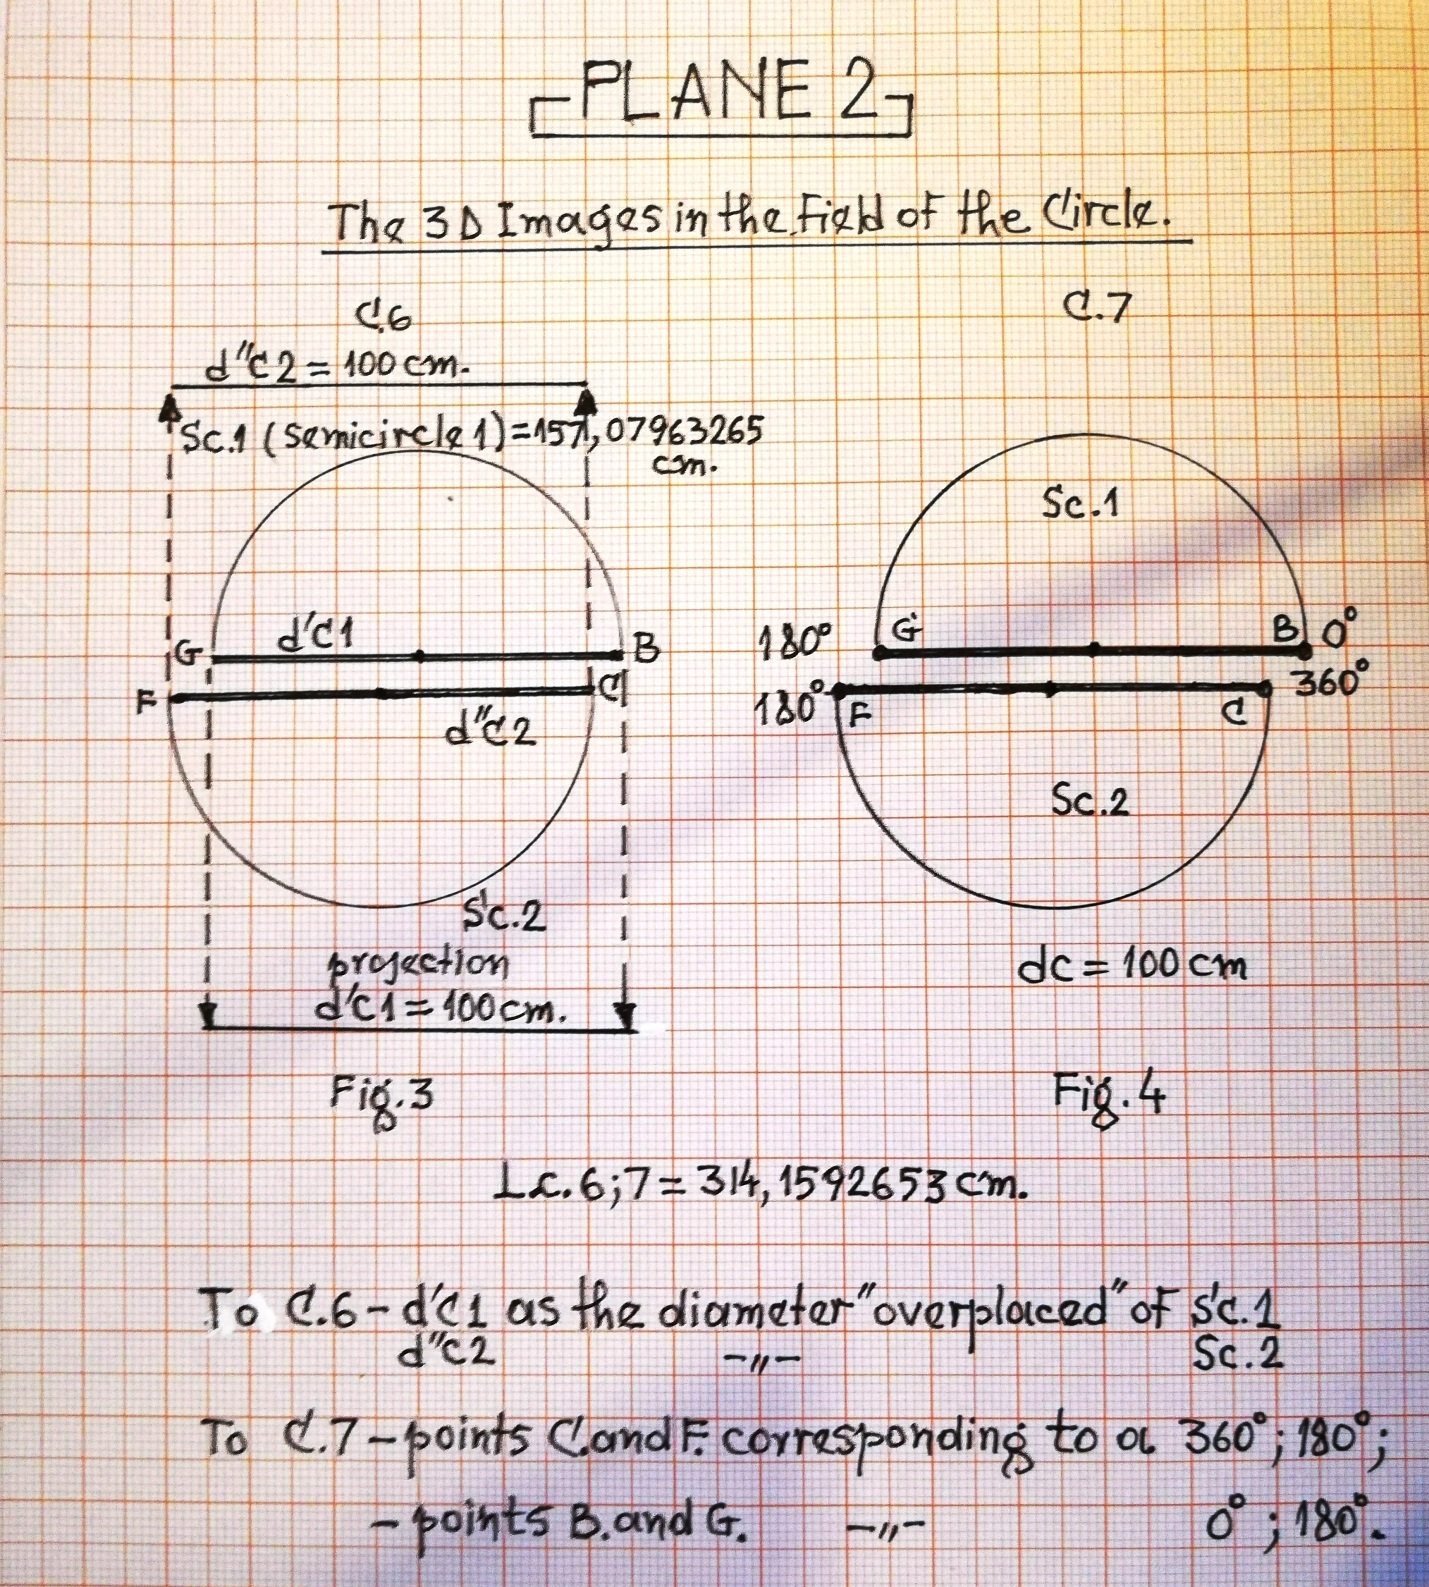 PLANE 2
The 3D Images in the Field of the Circle.
C.6
d"C2 = 100 cm.
Sc.1 (semicircle 1) = 157,07963265
cm.
G
d'C1
B
F
C
d"C2
Sc.2
projection
d'C1 = 100 cm.
Fig.3
C.7
Sc.1
180° G B 0°
180° F C 360°
Sc.2
dc = 100 cm
Fig. 4
Lc. 6;7 = 314,1592653 cm.
To C.6 - d'C1 as the diameter "overplaced" of Sc.1
d"C2 -"- Sc.2
To C.7 - points C. and F. corresponding to a 360°; 180°;
- points B. and G. -"- 0°; 180°.